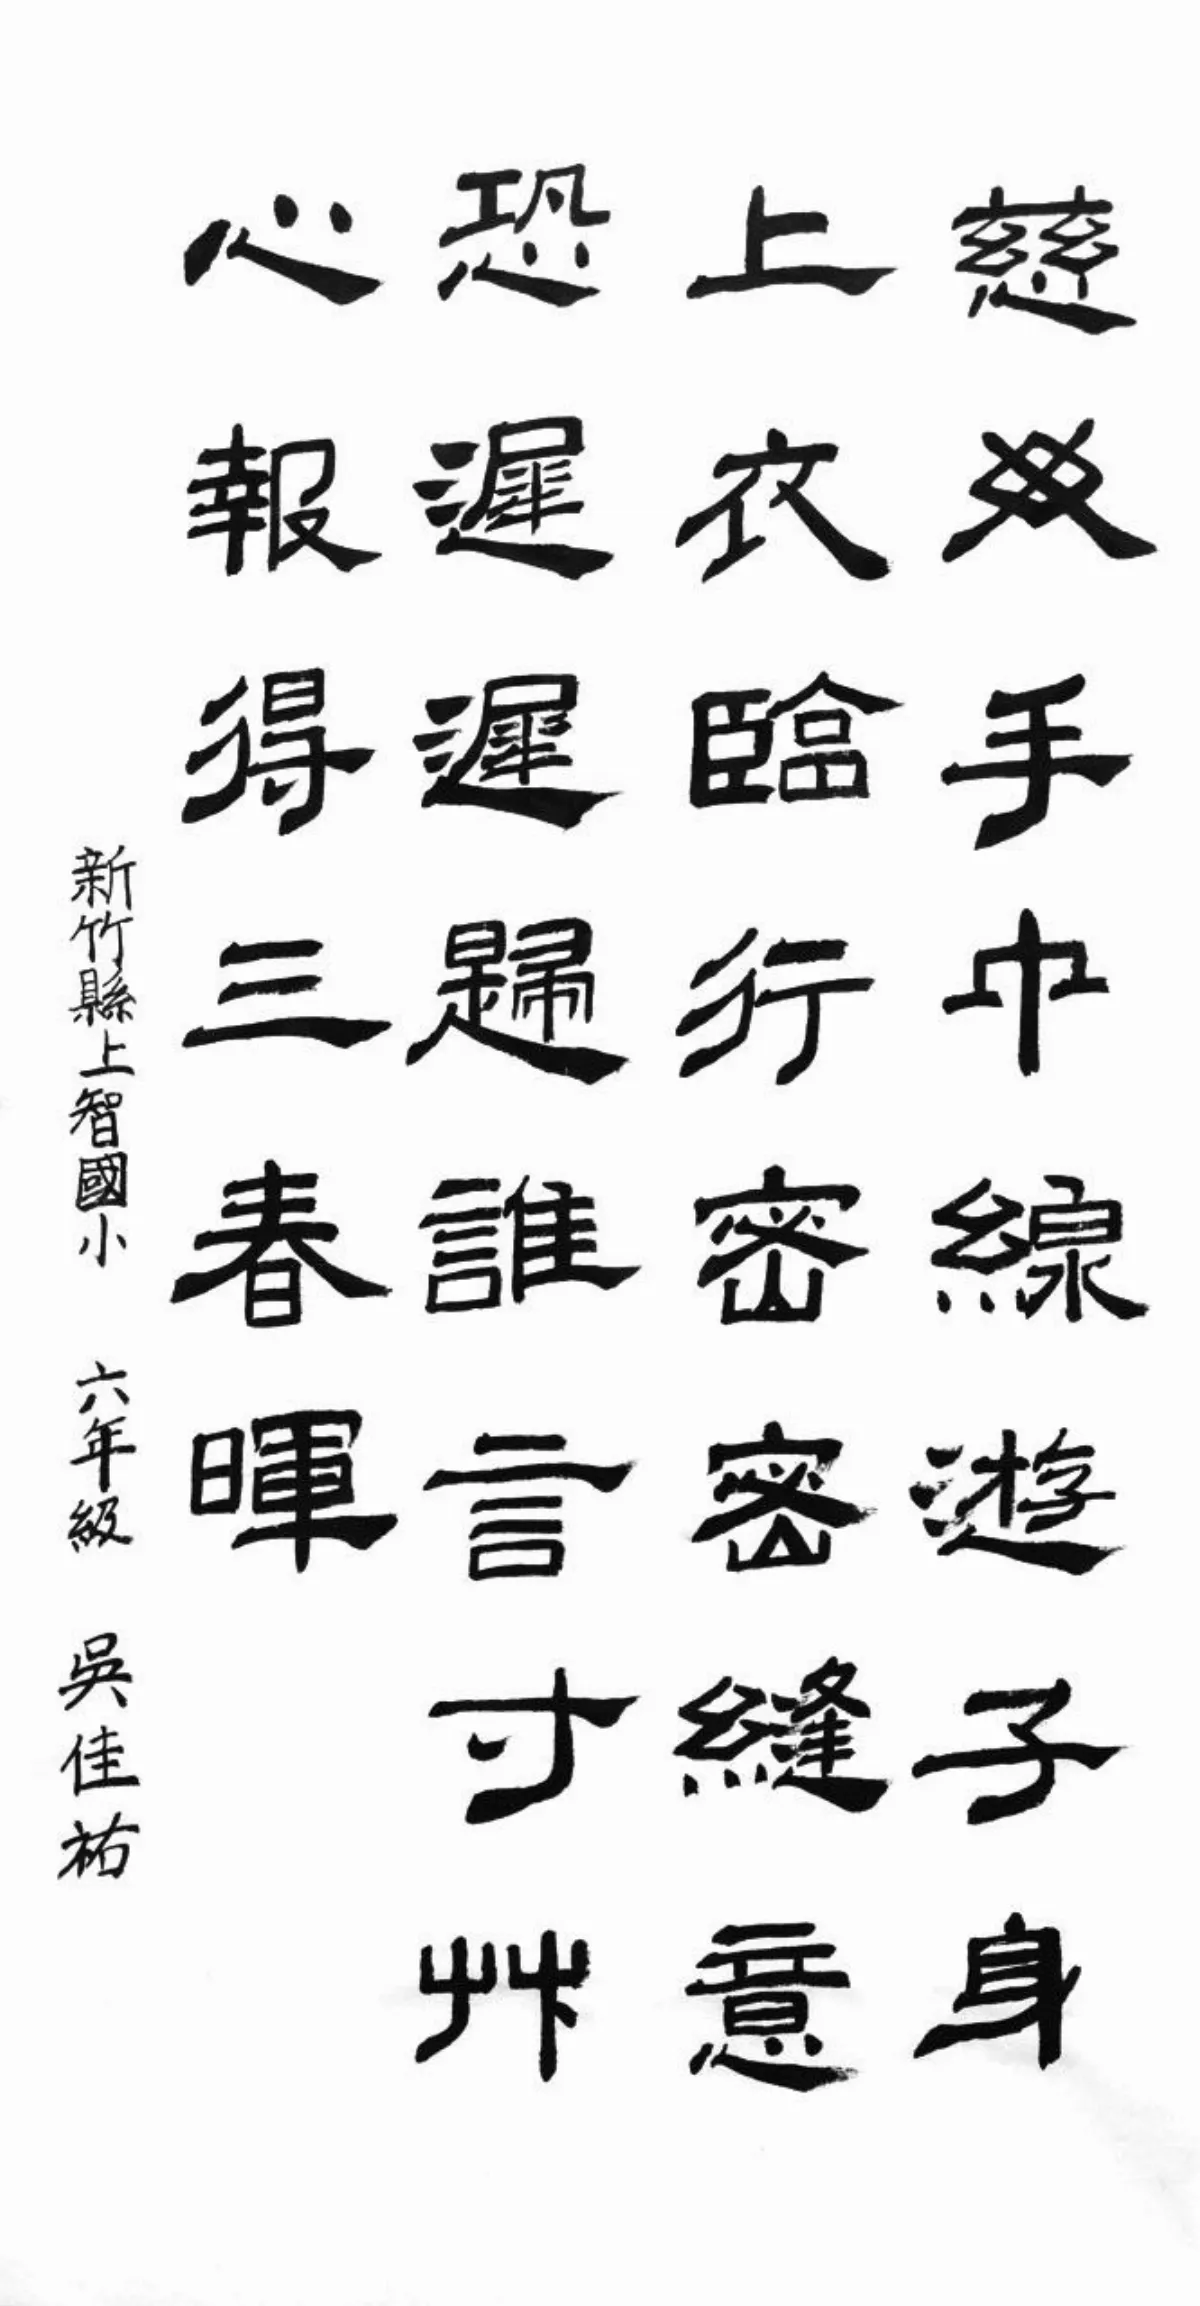 慈母手中線遊子身
上衣臨行密密縫意
恐遲遲歸誰言寸艸
心報得三春暉
新竹縣上智國小 六年級 吳佳祐